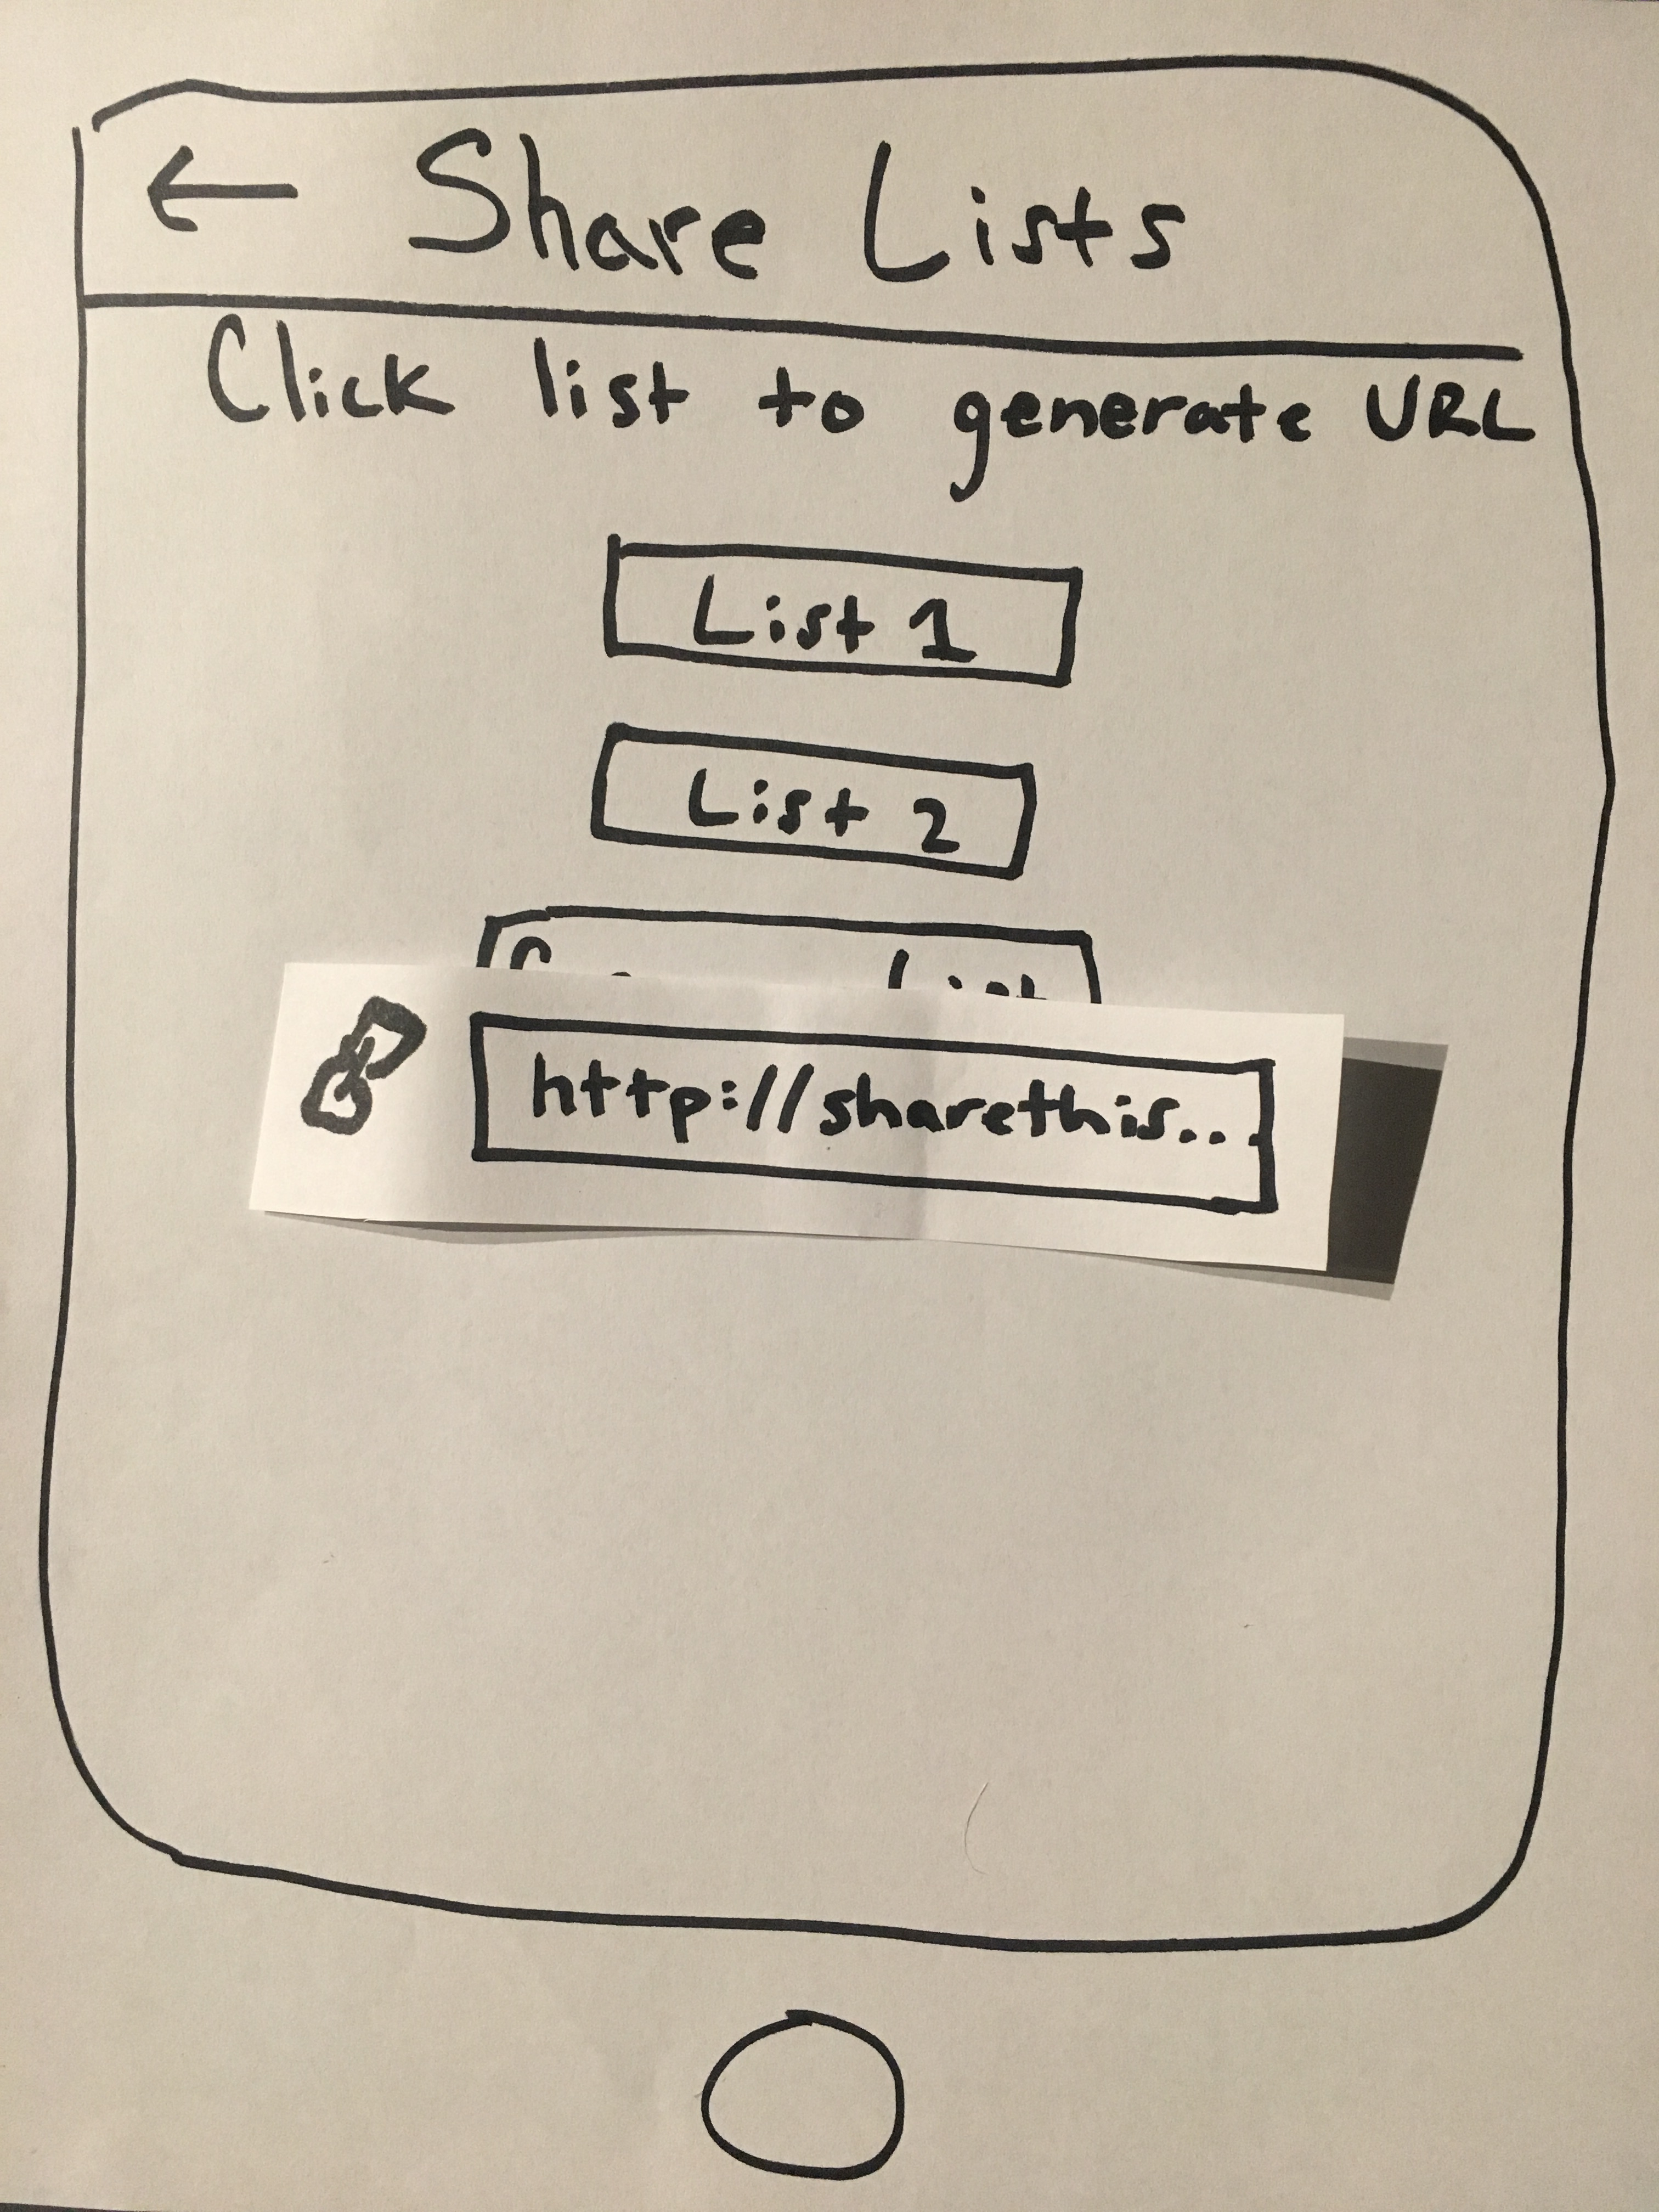 ← Share Lists
Click list to generate URL
List 1
List 2
List
http://sharethis...